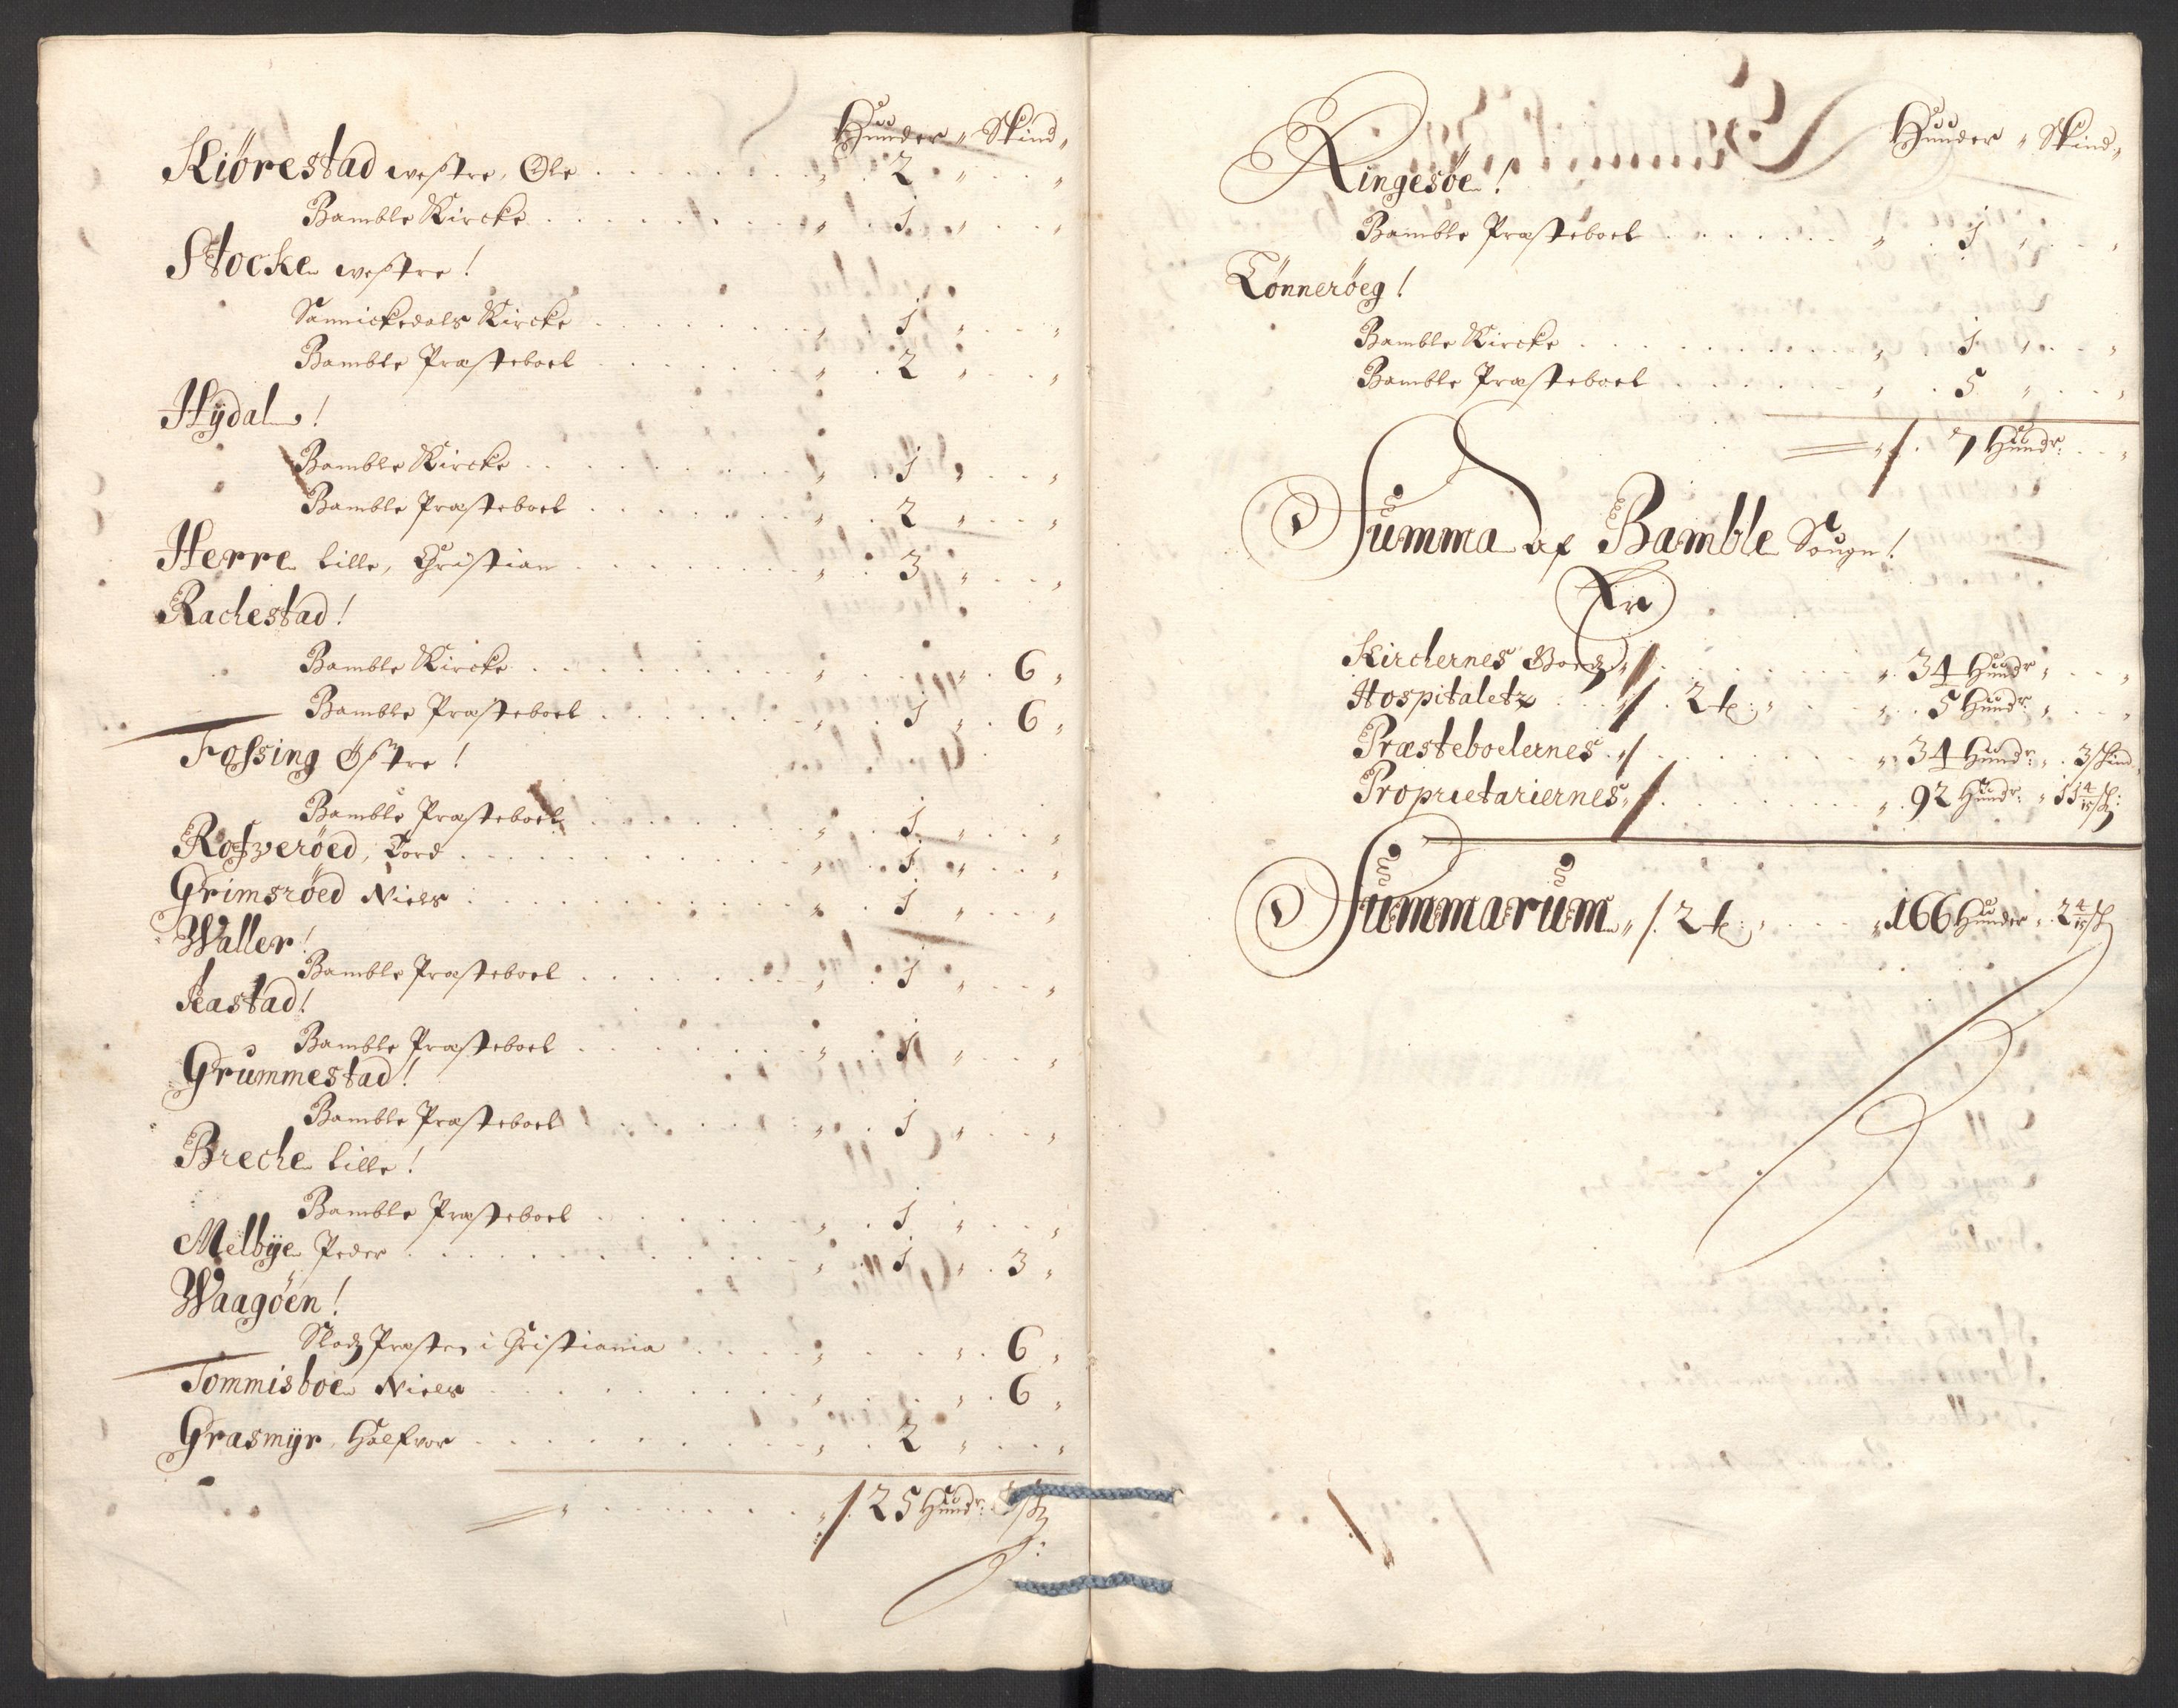 Huuder „ Skind„
Kiörestad westre, Ole . . . „ 2 „ . . „
Bamble Kircke . . . „ 1 „ . . „
Stocke westre!
Sannickedals Kircke . . . „ 1 „ . . „
Bamble Præsteboel . . . „ 2 „ . . „
Hÿdal!
Bamble Kircke . . . „ 1 „ . . „
Bamble Præsteboel . . . „ 2 „ . . „
Herre lille, Christian . . . „ 3 „ . . „
Rachestad!
Bamble Kircke . . . „ . „ 6 „
Bamble Præsteboel . . . „ 1 „ 6 „
Fossing Östre!
Bamble Præsteboel . . . „ 1 „ . . „
Roszveröed, Tord . . . „ 1 „ . . „
Grimsröed Niels . . . „ 1 „ . . „
Waller!
Bamble Præsteboel . . . „ 1 „ . . „
Feastad!
Bamble Præsteboel . . . „ 1 „ . . „
Grummestad!
Bamble Præsteboel . . . „ 1 „ . . „
Breche lille!
Bamble Præsteboel . . . „ 1 „ . . „
Melbÿe Peder . . . „ 1 „ 3 „
Waagöen!
Slodz Præsten i Christiania . . . „ . „ 6 „
Tommisboe Niels . . . „ . „ 6 „
Grasmÿr, Halfvor . . . „ 2 „ . . „
„ . . . „ /. 25 Huudr:
Huuder „ Skind„
Ringesöe!
Bamble Præsteboel . . . „ 1 „ . . „
Tönneröeg!
Bamble Kircke . . . „ 1 „ . . „
Bamble Præsteboel . . . „ 5 „ . . „
„ /. 7 Huudr: . . „
Summa af Bamble Sougn!
Er
Kirchernes Boelz „ /. . . . „ 34 Huudr „ . . „
Hospitaletz . . „ /. 2 t: „ . . „ 5 Huudr: „ . . „
Præsteboelernes „ /. . . . „ 34 Huudr: „ 3 skind
Proprietariernes „ /. . . . „ 92 Huudr: „ 11 4/15 sk:
Summarum „ /. 2 t: „ . . „ 166 Huuder „ 2 4/15 sk